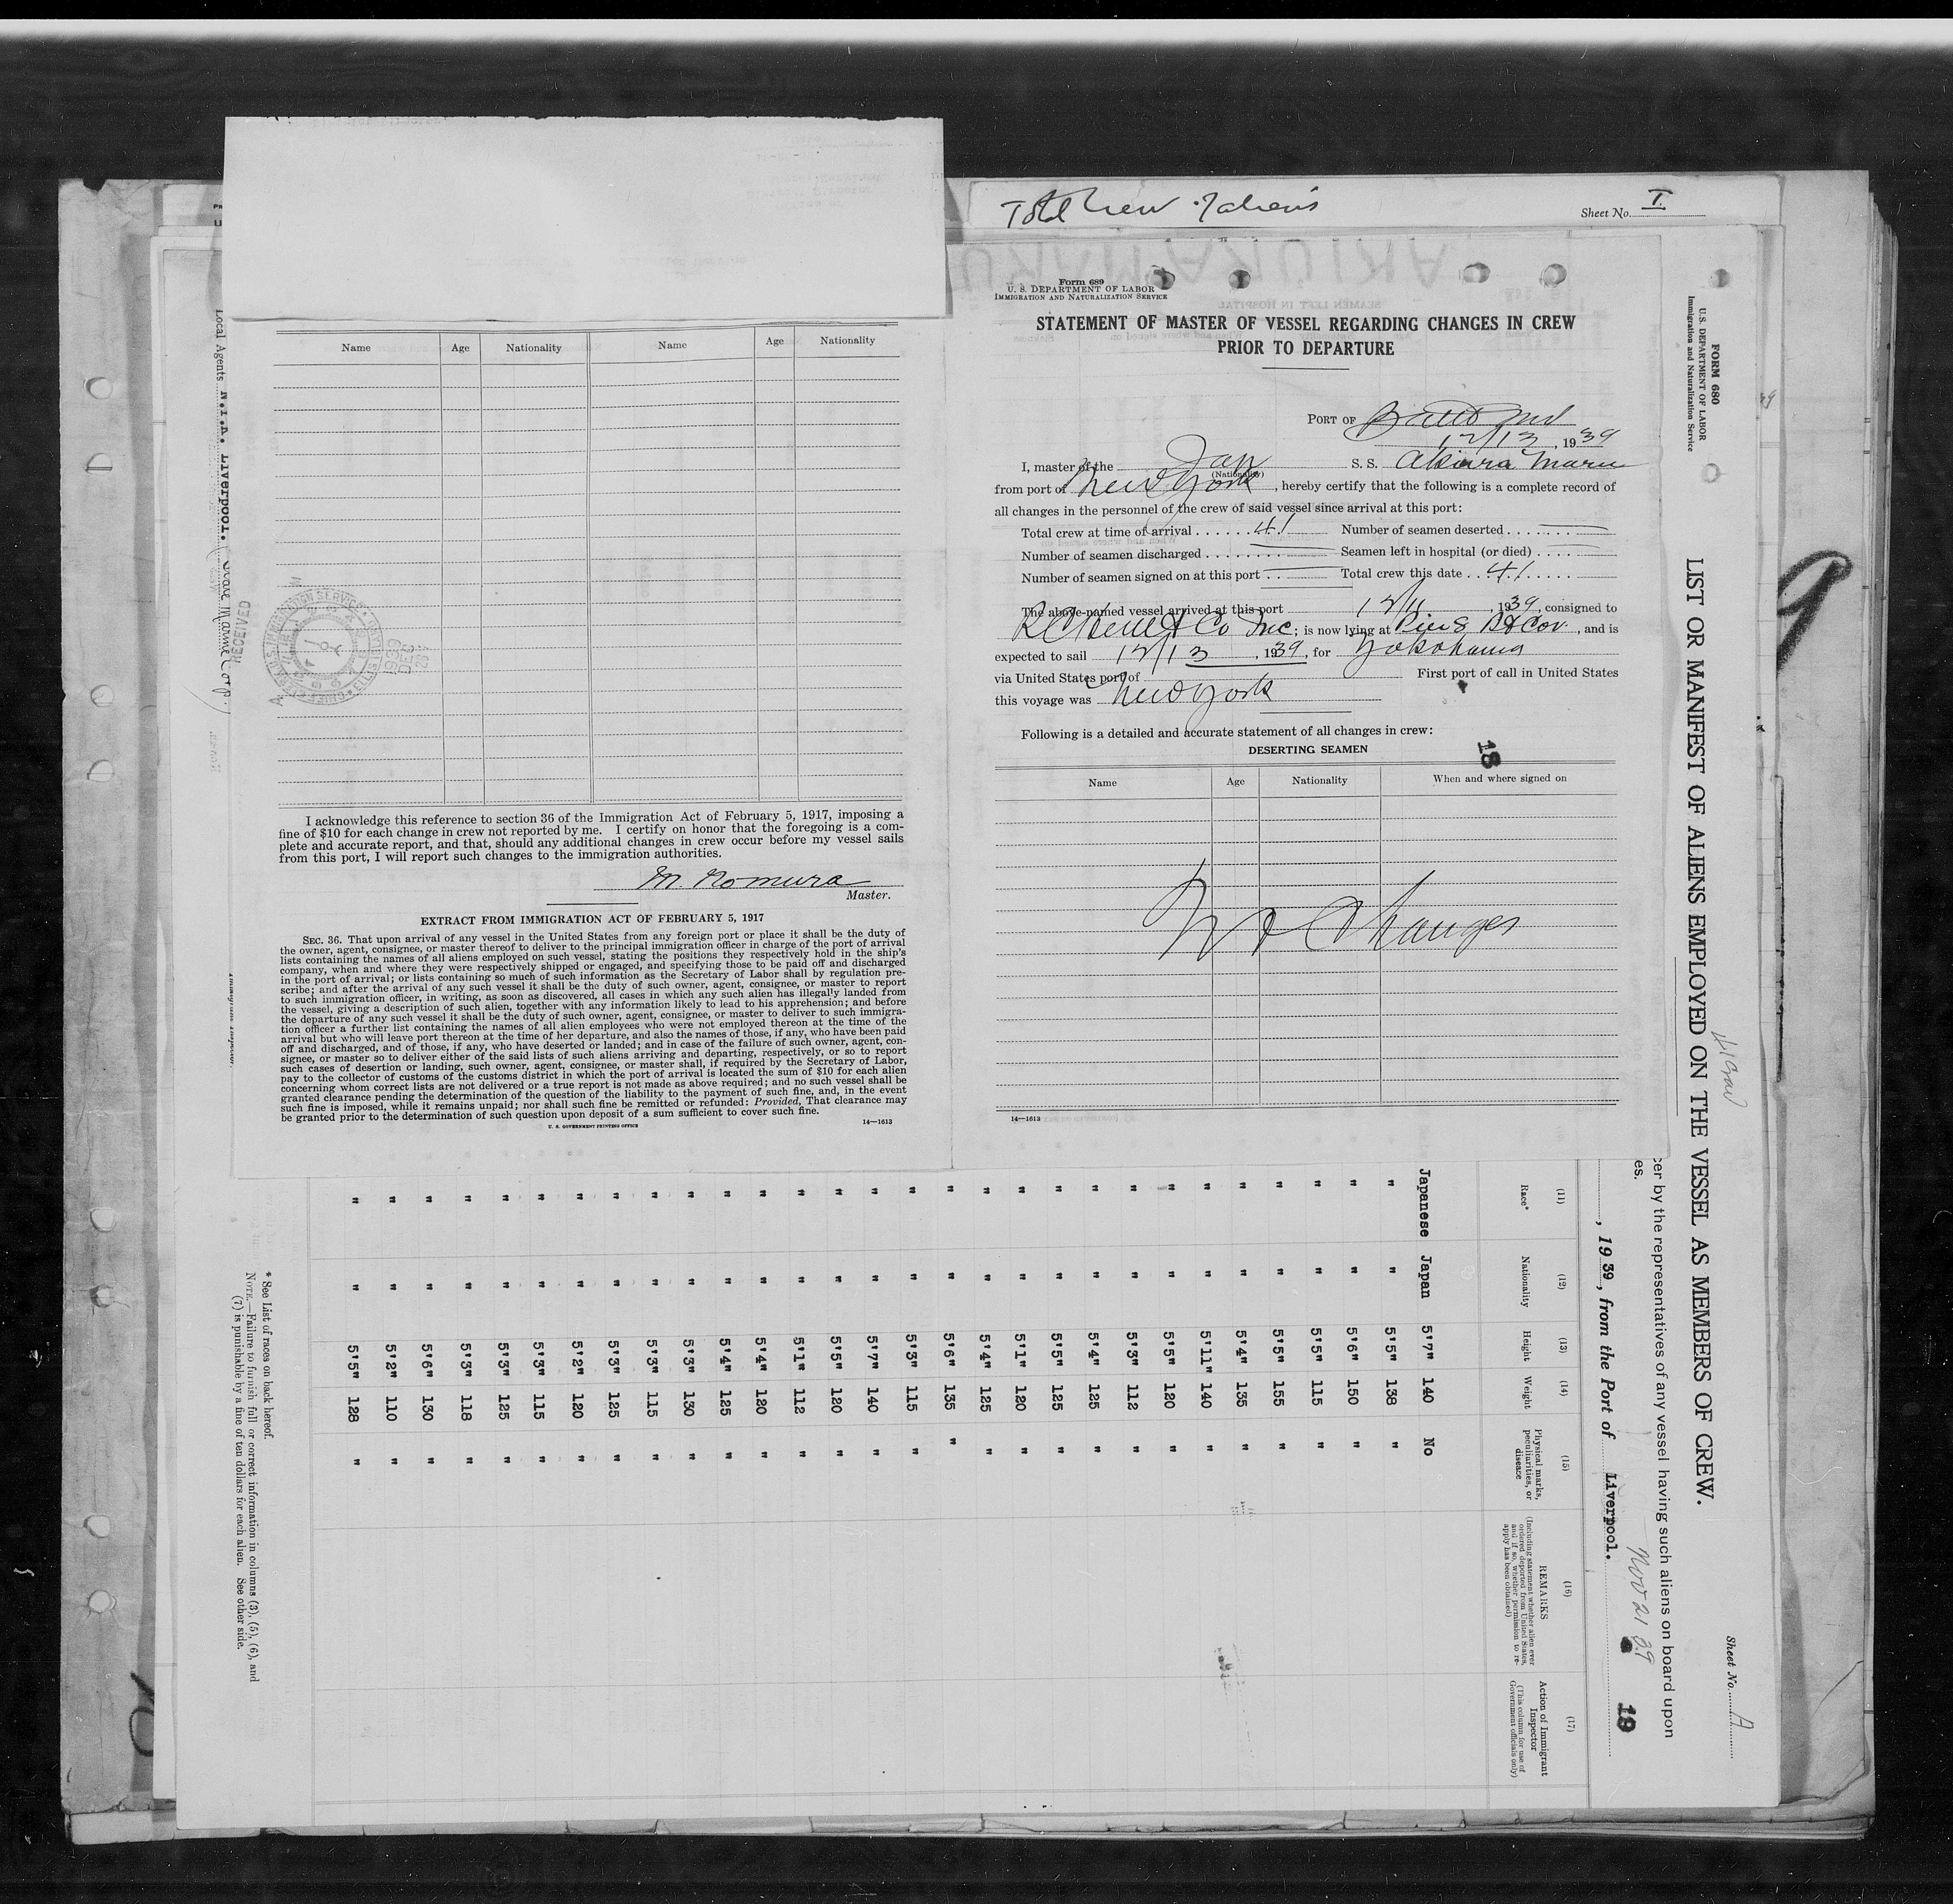 Total Crew
Sheet No. I.
Name Age Nationality Name Age Nationality
I acknowledge this reference to section 36 of the Immigration Act of February 5, 1917, imposing a
fine of $10 for each change in crew not reported by me. I certify on honor that the foregoing is a com-
plete and accurate report, and that, should any additional changes in crew occur before my vessel sails
from this port, I will report such changes to the immigration authorities.
M. Nomura
Master.
EXTRACT FROM IMMIGRATION ACT OF FEBRUARY 5, 1917
SEC. 36. That upon arrival of any vessel in the United States from any foreign port or place it shall be the duty of
the owner, agent, consignee, or master thereof to deliver to the principal immigration officer in charge of the port of arrival
lists containing the names of all aliens employed on such vessel, stating the positions they respectively hold in the ship's
company, when and where they were respectively shipped or engaged, and specifying those to be paid off and discharged
in the port of arrival; or lists containing so much of such information as the Secretary of Labor shall by regulation pre-
scribe; and after the arrival of any such vessel it shall be the duty of such owner, agent, consignee, or master to report
to such immigration officer, in writing, as soon as discovered, all cases in which any such alien has illegally landed from
the vessel, giving a description of such alien, together with any information likely to lead to his apprehension; and before
the departure of any such vessel it shall be the duty of such owner, agent, consignee, or master to deliver to such immigra-
tion officer a further list containing the names of all alien employees who were not employed thereon at the time of the
arrival but who will leave port thereon at the time of her departure, and also the names of those, if any, who have been paid
off and discharged, and of those, if any, who have deserted or landed; and in case of the failure of such owner, agent, con-
signee, or master so to deliver either of the said lists of such aliens arriving and departing, respectively, or so to report
such cases of desertion or landing, such owner, agent, consignee, or master shall, if required by the Secretary of Labor,
pay to the collector of customs of the customs district in which the port of arrival is located the sum of $10 for each alien
concerning whom correct lists are not delivered or a true report is not made as above required; and no such vessel shall be
granted clearance pending the determination of the question of the liability to the payment of such fine, and, in the event
such fine is imposed, while it remains unpaid; nor shall such fine be remitted or refunded: Provided, That clearance may
be granted prior to the determination of such question upon deposit of a sum sufficient to cover such fine.
U. S. GOVERNMENT PRINTING OFFICE 14—1613
Form 689
U. S. DEPARTMENT OF LABOR
IMMIGRATION AND NATURALIZATION SERVICE
STATEMENT OF MASTER OF VESSEL REGARDING CHANGES IN CREW
PRIOR TO DEPARTURE
PORT OF Balto Md
12/13, 1939
I, master of the Jap S. S. Akiura Maru
(Nationality)
from port of New York, hereby certify that the following is a complete record of
all changes in the personnel of the crew of said vessel since arrival at this port:
Total crew at time of arrival 41 Number of seamen deserted
Number of seamen discharged Seamen left in hospital (or died)
Number of seamen signed on at this port Total crew this date 41
The above-named vessel arrived at this port 12/11, 1939, consigned to
Co Inc; is now lying at Pier 8, and is
expected to sail 12/13, 1939, for Yokohama
via United States port of First port of call in United States
this voyage was New York
Following is a detailed and accurate statement of all changes in crew:
DESERTING SEAMEN
18
Name Age Nationality When and where signed on
No Changes
14—1613
FORM 680
U.S. DEPARTMENT OF LABOR
Immigration and Naturalization Service
LIST OR MANIFEST OF ALIENS EMPLOYED ON THE VESSEL AS MEMBERS OF CREW.
Sheet No. A
cer by the representatives of any vessel having such aliens on board upon
es.
, 1939, from the Port of Liverpool.
Nov 21 39
19
(11) Race* (12) Nationality (13) Height (14) Weight (15) Physical marks, peculiarities, or disease (16) REMARKS (Including statement whether alien ever ordered deported from United States, and if so, whether permission to re-apply has been obtained) (17) Action of Immigrant Inspector (This column for use of Government officials only)
Japanese Japan 5'7" 140 No
" " 5'5" 138 "
" " 5'6" 150 "
" " 5'5" 115 "
" " 5'5" 155 "
" " 5'4" 135 "
" " 5'11" 140 "
" " 5'5" 120 "
" " 5'3" 112 "
" " 5'4" 125 "
" " 5'5" 125 "
" " 5'1" 120 "
" " 5'4" 125 "
" " 5'6" 135 "
" " 5'3" 115 "
" " 5'7" 140 "
" " 5'5" 120 "
" " 5'1" 112 "
" " 5'4" 120 "
" " 5'4" 125 "
" " 5'3" 130 "
" " 5'3" 115 "
" " 5'3" 125 "
" " 5'2" 120 "
" " 5'3" 115 "
" " 5'3" 125 "
" " 5'3" 118 "
" " 5'6" 130 "
" " 5'2" 110 "
" " 5'5" 128 "
* See List of races on back hereof.
NOTE.—Failure to furnish full or correct information in columns (3), (5), (6), and
(7) is punishable by a fine of ten dollars for each alien. See other side.
RECEIVED
1939
DEC
Local Agents N.Y.K. Liverpool.